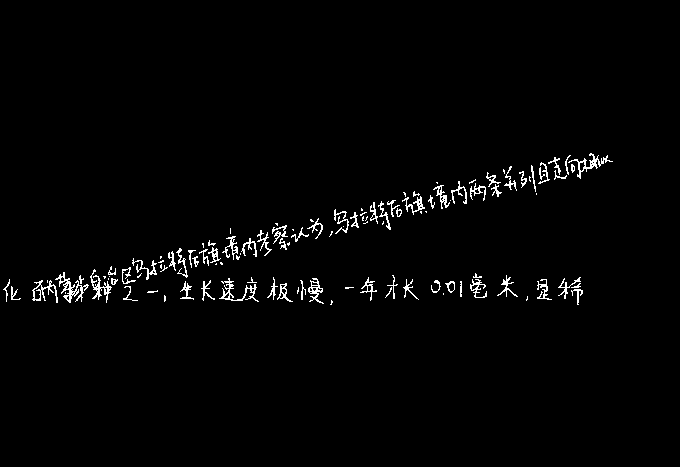 自治区乌拉特后旗境内考察认为,乌拉特后旗境内两条并列且走向
之一,生长速度极慢,一年才长0.01毫米,是稀